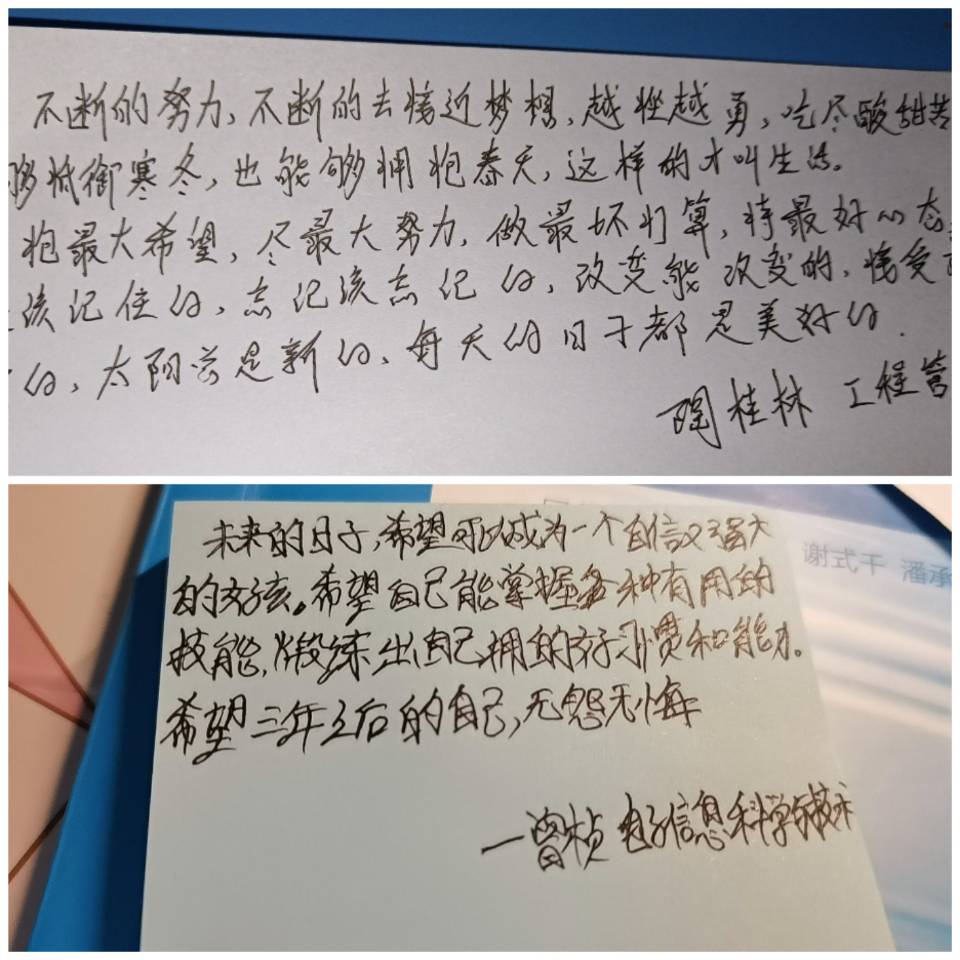 不断的努力，不断的去接近梦想，越挫越勇，吃尽酸甜苦
够抵御寒冬，也能够拥抱春天，这样的才叫生活。
抱最大希望，尽最大努力，做最坏打算，持最好心态
该记住的，忘记该忘记的，改变能改变的，接受
的，太阳总是新的，每天的日子都是美好的．
陶桂林 工程管
未来的日子，希望可以成为一个自信又强大
的女孩。希望自己能掌握各种有用的
技能，煅练出自己拥的好习惯和能力。
希望三年之后的自己，无怨无悔
—曾桢 电子信息科学与技术
谢式千 潘承